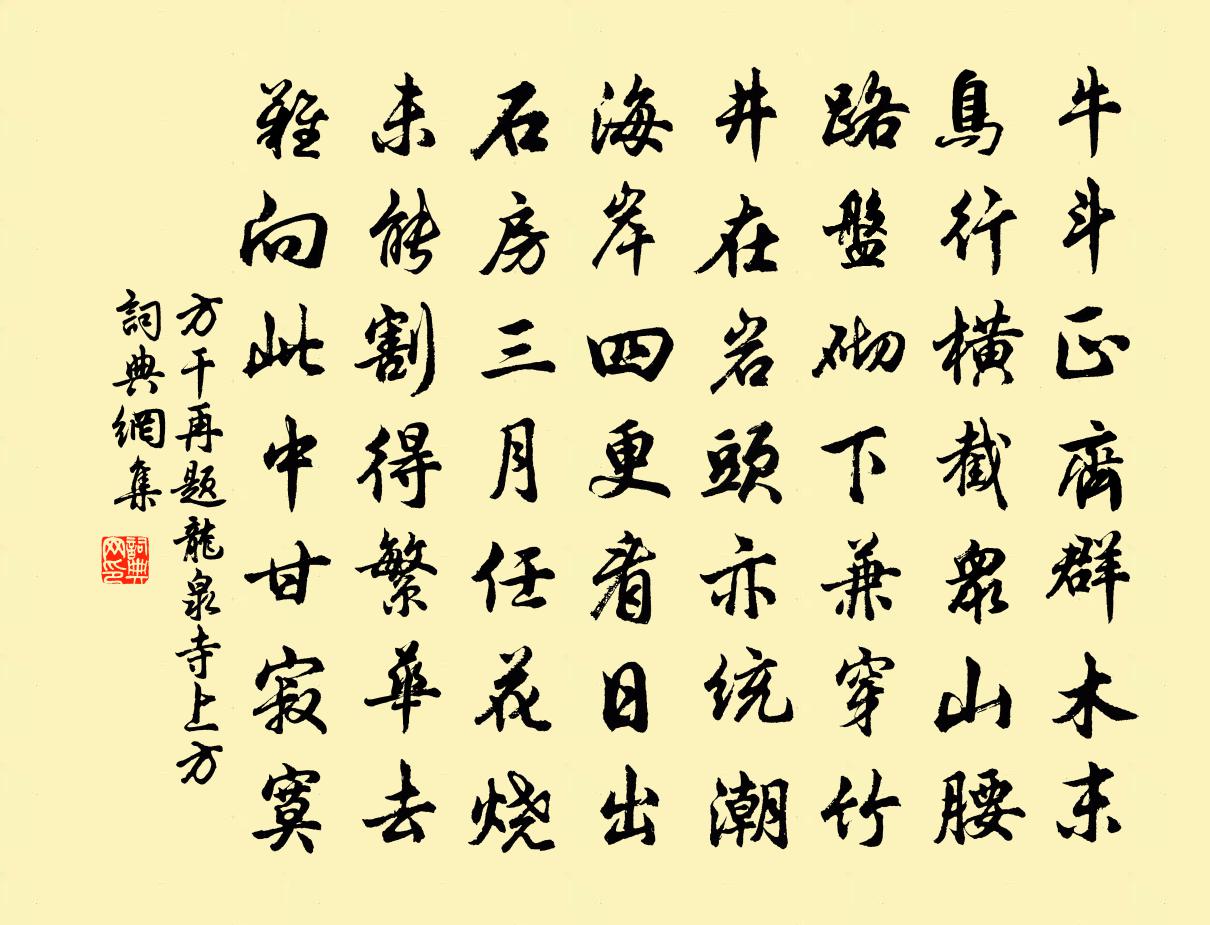 牛斗正齊群木末
鳥行橫截衆山腰
路盤砌下兼穿竹
井在岩頭亦統潮
海岸四更看日出
石房三月任花烧
未能割得繁華去
難向此中甘寂寞
方干再題龍泉寺上方
詞典網集
詞典
网印